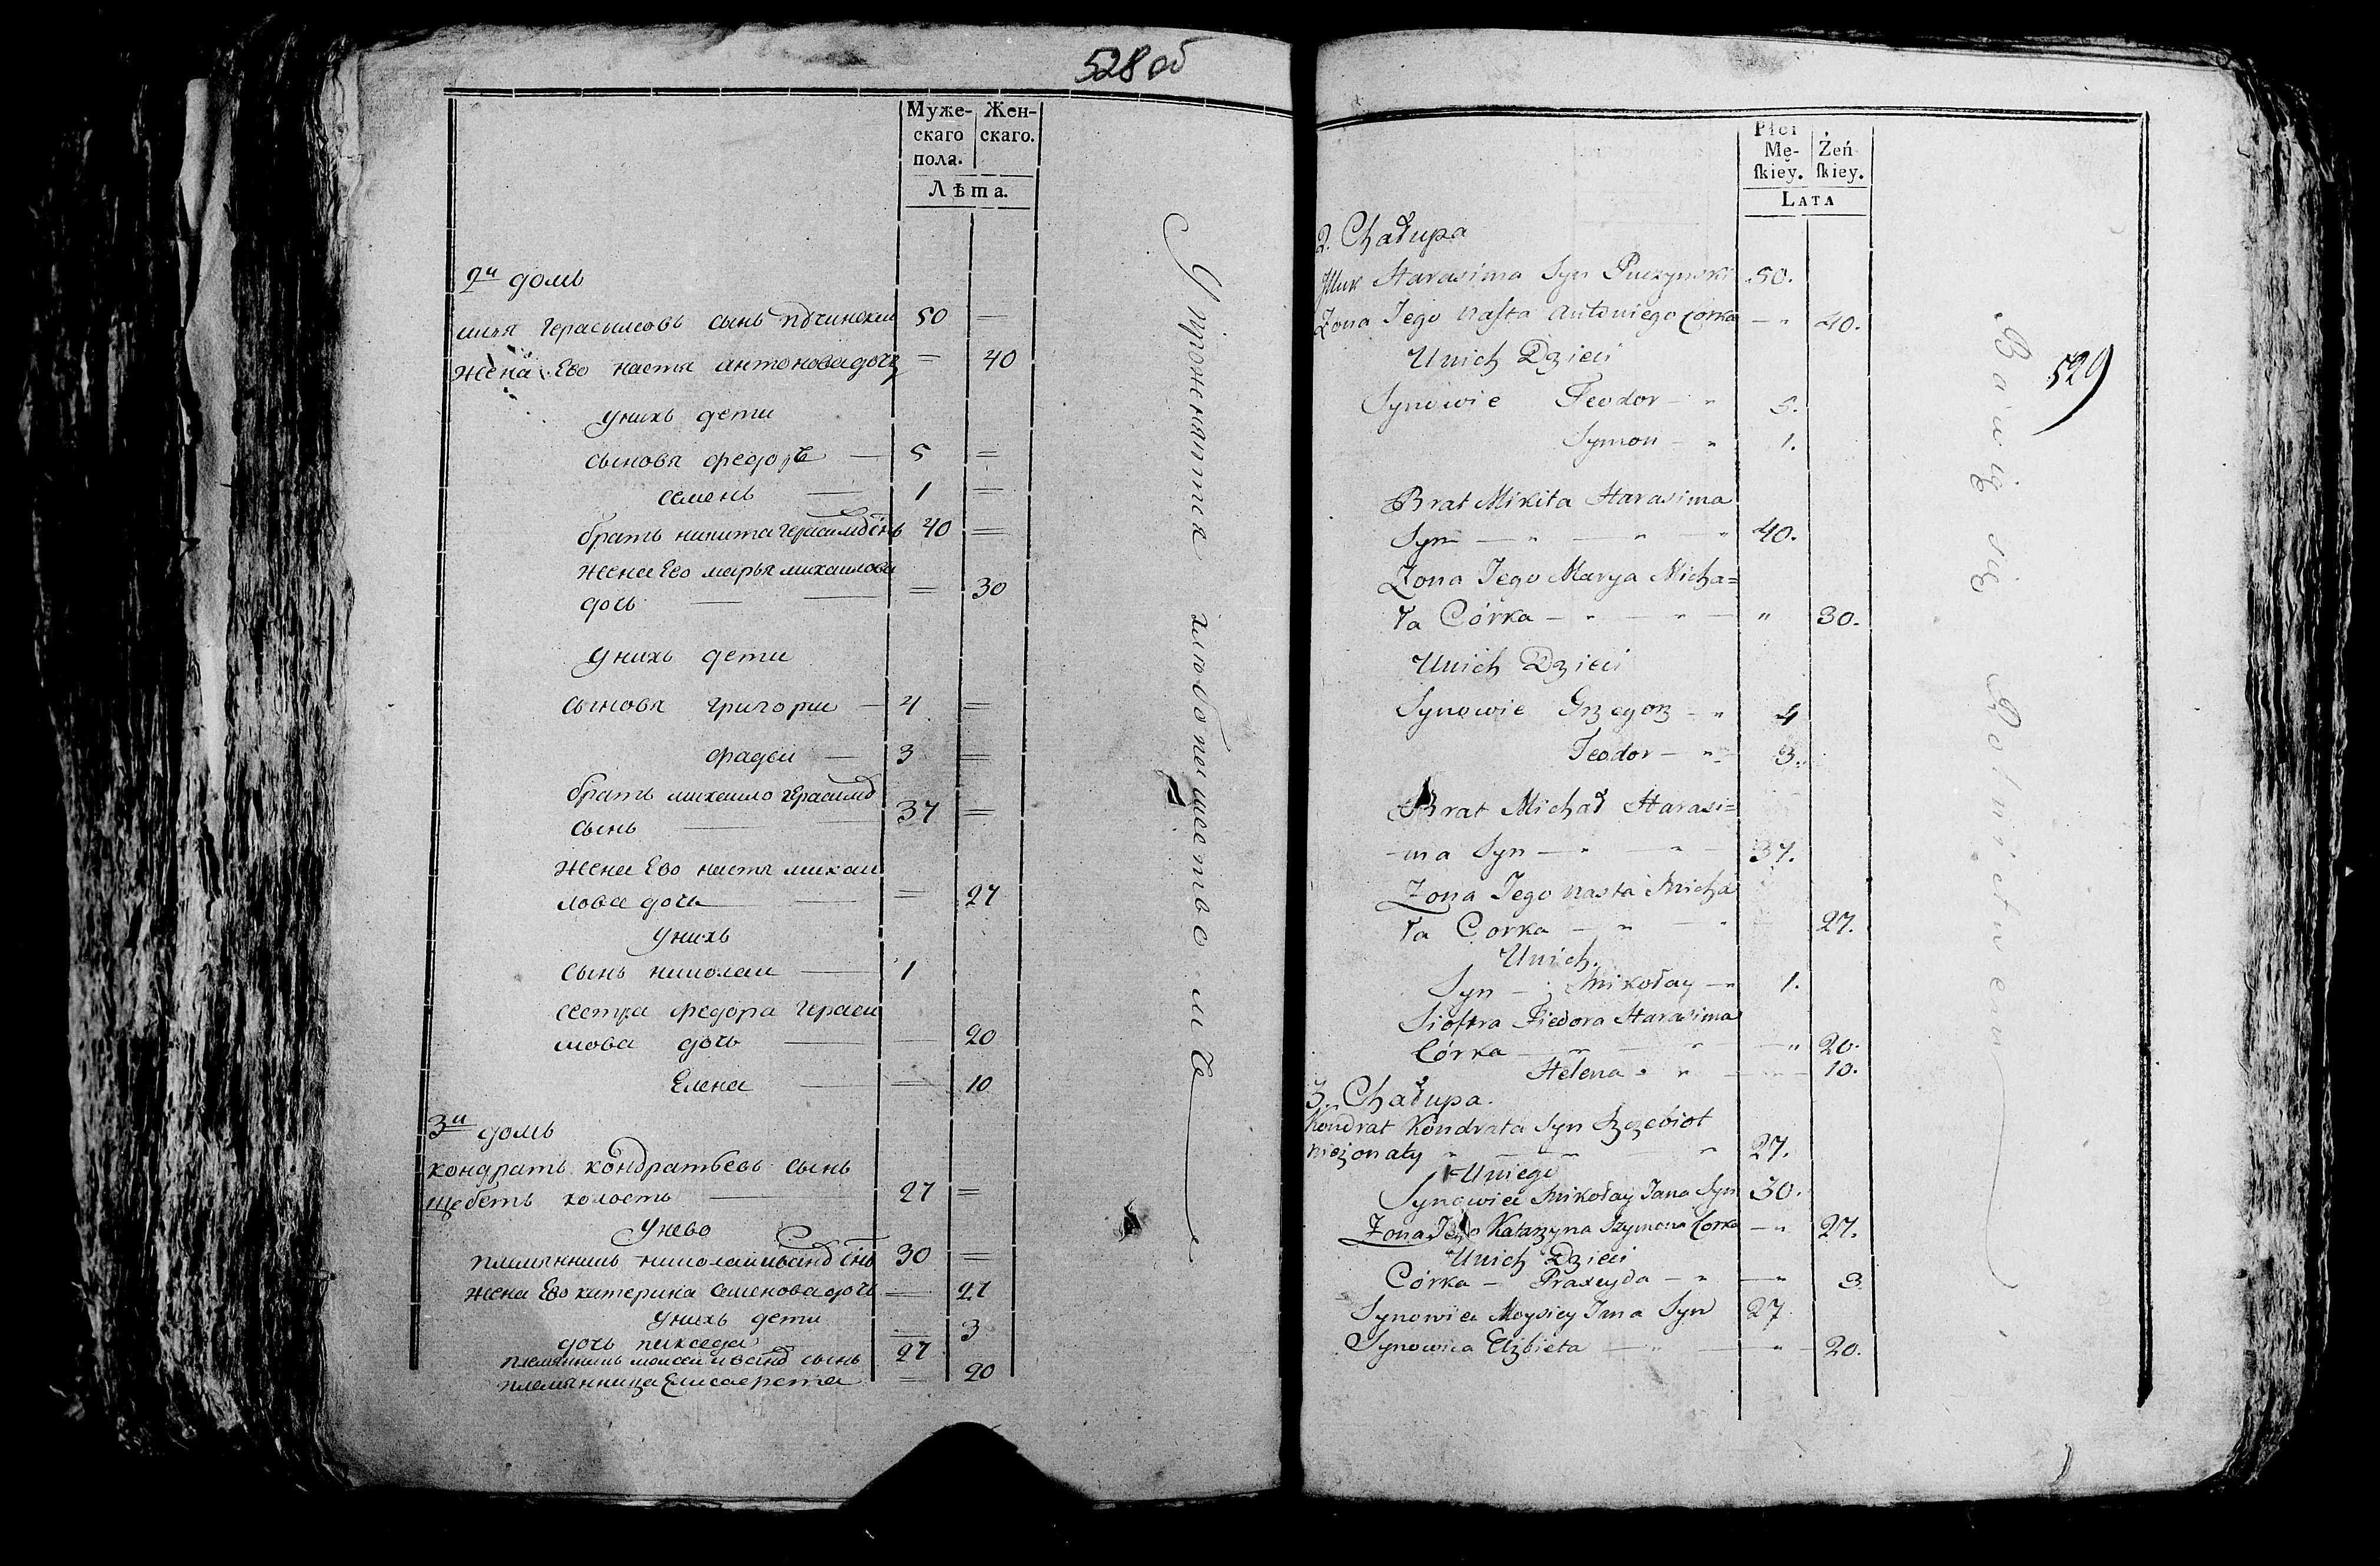 528 об
Муже-
скаго
пола.
Жен-
скаго.
Лѣта.
2й домъ
илья Герасимовъ сынъ 50 —
Жена Ево настя антонова дочь = 40
унихъ дети
сыновя федоръ — 5 =
семенъ — 1 =
братъ никита герасимо снъ 40 =
жена Ево марья михаилова
дочь — = 30
унихъ дети
сыновя григории — 4 =
фадеи — 3 =
братъ михаило герасимо
сынъ — 37 =
жена Ево настя михаи
лова дочь — = 27
унихъ
сынъ николаи — 1
сестра федора Гераси
мова дочь — — 20
Елена — = 10
3й домъ
кондратъ кондратьевъ сынъ
щебетъ холостъ — 27 =
унево
племянникъ николаи ивано снъ 30 =
жена Ево катерина семенова дочь — 27
унихъ дети
дочь — 3
племянникъ моисеи ивано сынъ 27
племянница Елисаерета = 20
Упражняются хлебопашествомъ
529
Płci
Mę-
skiey.
Żeń
skiey.
LATA
2. Chałupa
Harasima Syn 50.
Żona Jego Nasta Antoniego Corka — " 40.
Unich Dzieci
Synowie Feodor — " 5.
Symon — " 1.
Brat Mikita Harasima
Syn — " — " — " 40.
Żona Jego Marya Micha=
ła Córka — " — " — " 30.
Unich Dzieci
Synowie Grzegorz — " 4
Teodor — " 3.
Brat Michał Harasi=
ma Syn — " — " — 37.
Żona Jego Nasta Micha
ła Corka — " — " — 27.
Unich.
Syn — Mikołay — " 1.
Siostra Fiedora Harasima
Córka — " — " — " 20.
Helena " " — — 10.
3. Chałupa.
Kondrat Kondrata Syn Szczebiot
nieżonaty " — " — " 27.
Uniego
Synowiec Mikołay Jana Syn 30.
Żona Jego Katarzyna Szymona Corka — " 27.
Unich Dzieci
Córka — Praxeyda — " — " 3
Synowiec Moysiey Jana Syn 27
Synowica Elżbieta — " — " — 20.
Bawią się Rolnictwem